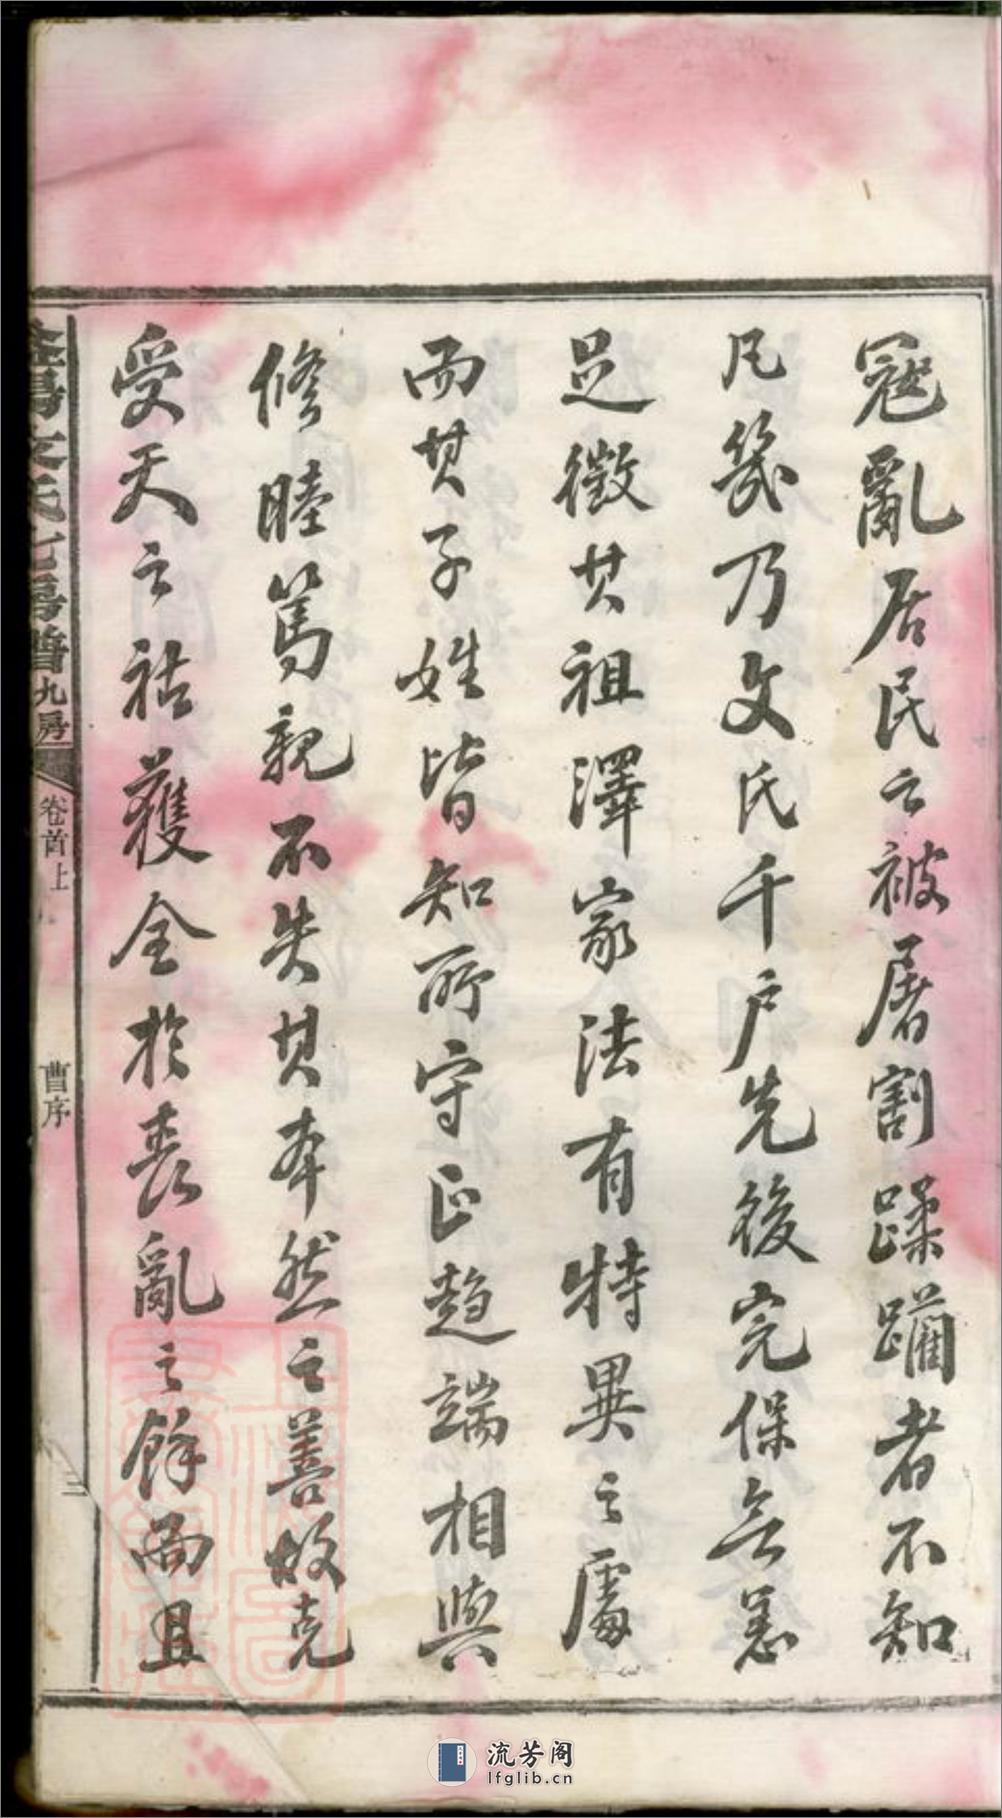 寇亂居民之被屠割蹂躪者不知
凡幾乃文氏千户先後完保無恙
足徵其祖澤家法有特異之處
而其子姓皆知所守正趋端相與
修睦篤親不失其本然之善故克
受天之祜獲全於喪亂之餘而且
文氏七房譜九房
卷首上
曹序
三
流芳阁
lfglib.cn